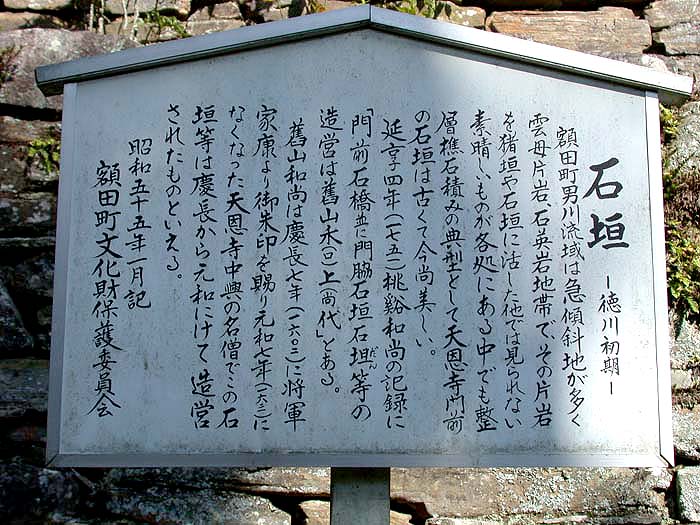 石垣 ー徳川初期ー
額田町男川流域は急傾斜地が多く
雲母片岩、石英岩地帯で、その片岩
を猪垣や石垣に活した他では見られない
素晴しいものが各処にある中でも整
層樵石積みの典型として天恩寺門前
の石垣は古くて今尚美しい。
延享四年(一七五一)桃谿和尚の記録に
「門前石橋並に門脇石垣石垣だん等の
造営は舊山禾(口)上(尚代)」とある。
舊山和尚は慶長七年(一六〇二)に将軍
家康より御朱印を賜り元和七年(一六二一)に
なくなった天恩寺中興の名僧でこの石
垣等は慶長から元和にけて造営
されたものといえる。
昭和五十五年一月記
額田町文化財保護委員会